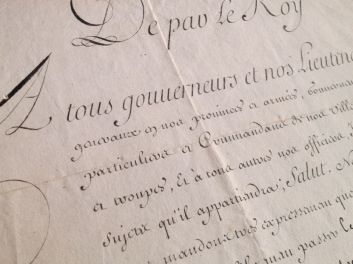 De par le Roy
A tous gouverneurs et nos Lieutena
generaux en nos provinces et armées, Gouverne
particuliers et Commandans de nos Ville
et troupes, Et à tous autres nos officiers,
sujets qu'il appartiendra; Salut. N
mandons tres expressement que
passer le